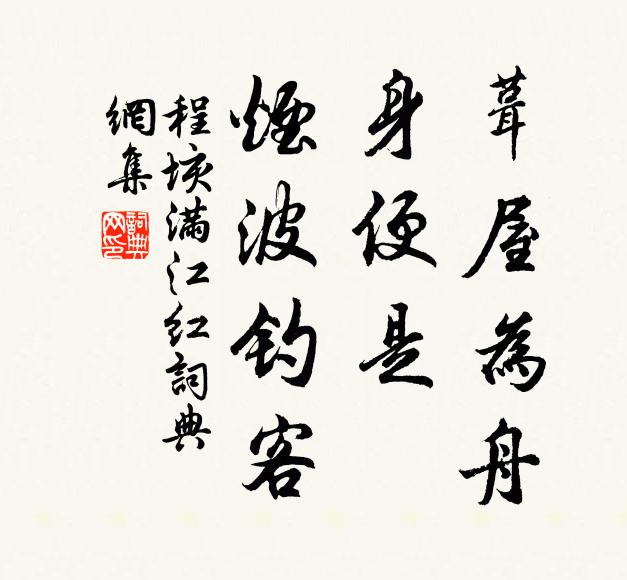 葺屋為舟
身便是
煙波釣客
程垓滿江紅詞典
網集
詞典网印